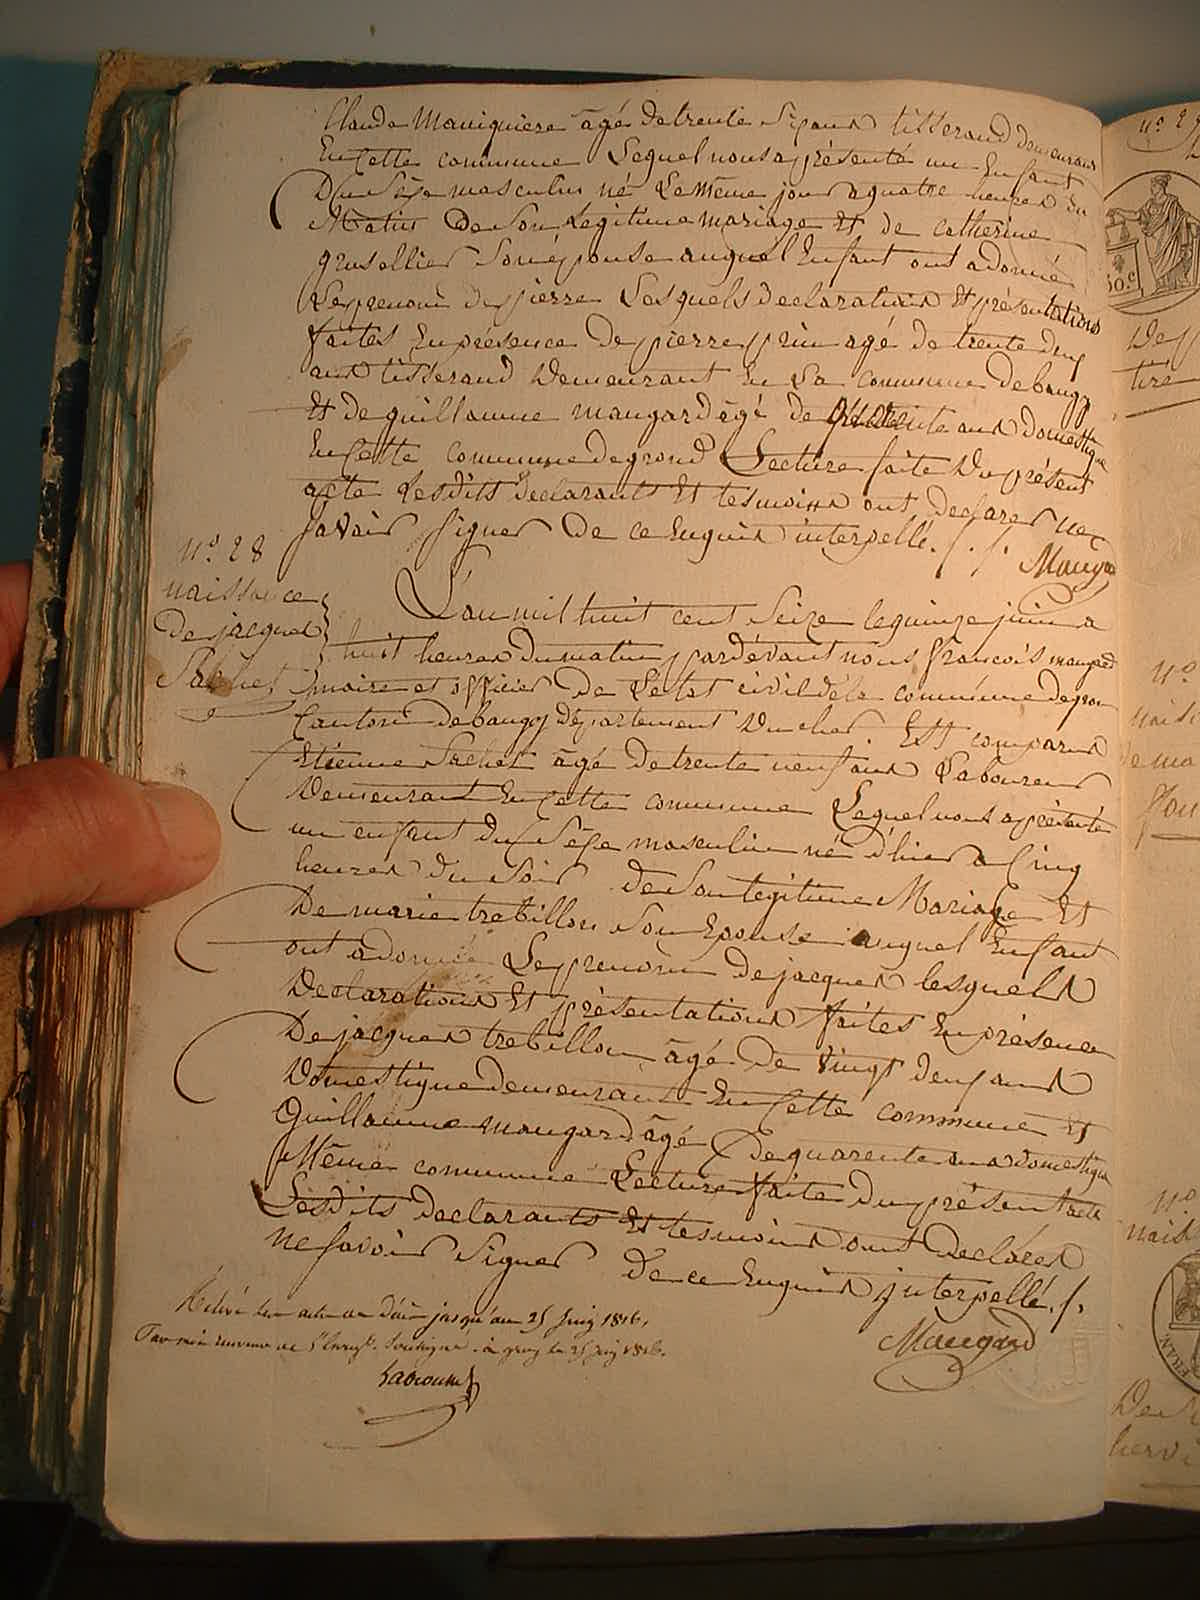 Claude Maniquiere âgé de trente six ans tisserand demeurant
En Cette commune Lequel nous a présenté un Enfant
Du Sexe masculin né Le Même jour a quatre heures du
Matin de Son Legitime mariage Et de catherine
grusellier Son épouse auquel Enfant ont a donné
Le prenom de pierre Lesquels declarations Et présentations
faites En présence de pierre prin agé de trente deux
ans tisserand Demeurant En La commune de baugy
Et de guillaume maugard égé de quarente ans domestique
En Cette commune de grond Lecture faite Du présent
acte Lesdits declarants Et tesmoins ont declarer ne
savoir signer de ce Enquis interpellé. /. /. Maugard
n.º 28
naissance
De jacques
Sachet
L'an mil huit cent Seize le quinze juin a
huit heures du matin pardévant nous françois maugard
maire et officier De L'etat civil de la commune de gron
Canton de baugy département Du cher. Est comparu
Etienne Sachet âgé de trente neuf ans Laboureur
Demeurant En Cette commune Lequel nous a présenté
un enfant du Sexe masculin né d'hier a Cinq
heures du Soir de Son legitime Mariage Et
De marie trebillon Son Epouse auquel Enfant
ont a donnée Le prenom de jacques lesquels
Declarations Et présentations faites En présence
De jacques trebillon âgé de vingt deux ans
Domestique demeurant En Cette commune Et
Guillaume maugard âgé de quarente ans domestique
Même commune Lecture faite du présent acte
Lesdits declarants Et tesmoins ont declarer
ne savoir Signer de ce Enquis interpellé. /.
Maugard
Relevé les actes de Décès jusqu'au 25 Juin 1816.
Par moi de l'Enregt. Soussigné. à gron le 25 juin 1816.
n.º 2
50.c
De
tire
n.º
nais
de ma
n.º
nais
FRAN
De